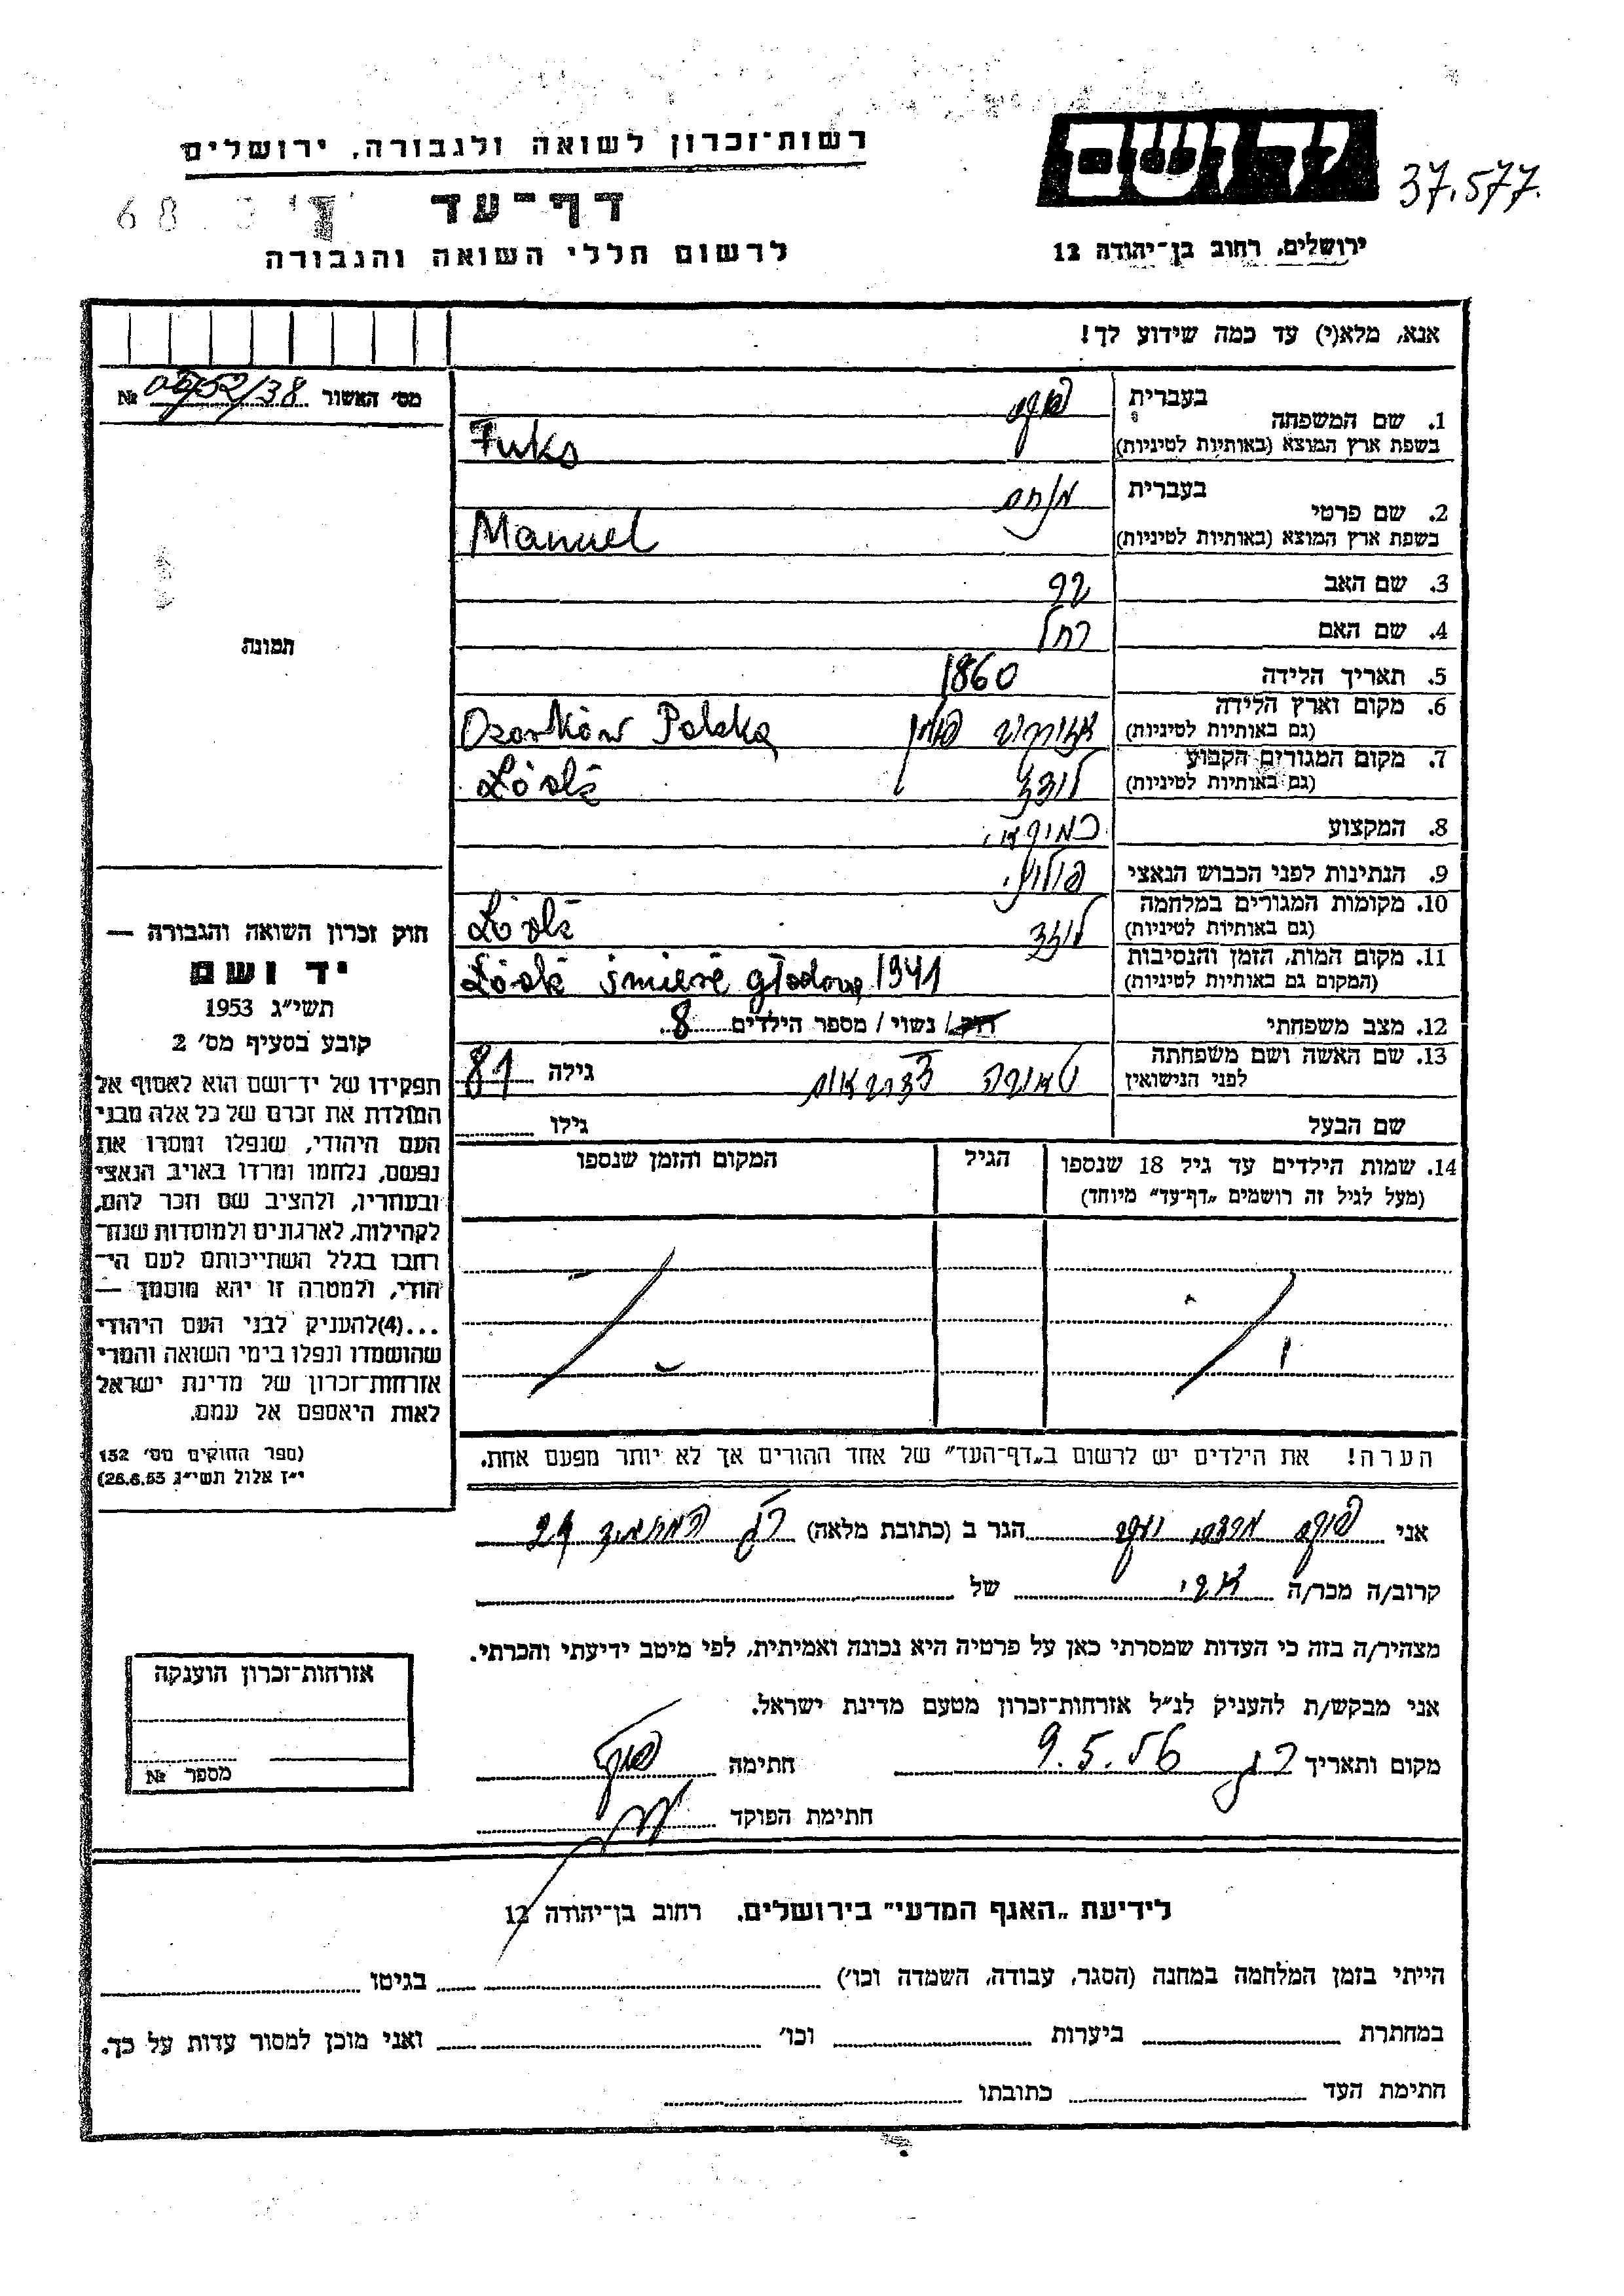 רשות־זכרון לשואה ולגבורה, ירושלים
יד ושם
37.577.
דף־עד
68
לרשום חללי השואה והגבורה
ירושלים, רחוב בן־יהודה 12
אנא, מלא(י) עד כמה שידוע לך!
מס׳ האשור № /38
1. שם המשפחה
בעברית פוקס
בשפת ארץ המוצא (באותיות לטיניות) Fuks
2. שם פרטי
בעברית מנחם
בשפת ארץ המוצא (באותיות לטיניות) Manuel
3. שם האב
4. שם האם רחל
5. תאריך הלידה 1860
6. מקום וארץ הלידה
(גם באותיות לטיניות) פולין Ozorków Polska
7. מקום המגורים הקבוע
(גם באותיות לטיניות) לודז Łódź
8. המקצוע
9. הנתינות לפני הכבוש הנאצי פולנית
10. מקומות המגורים במלחמה
(גם באותיות לטיניות) לודז Łódź
11. מקום המות, הזמן והנסיבות
(המקום גם באותיות לטיניות) Łódź śmierć głodowa 1941
12. מצב משפחתי רוק / נשוי / מספר הילדים 8
13. שם האשה ושם משפחתה
לפני הנישואין
גילה 81
שם הבעל גילו
14. שמות הילדים עד גיל 18 שנספו
(מעל לגיל זה רושמים „דף־עד״ מיוחד)
הגיל
המקום והזמן שנספו
הערה! את הילדים יש לרשום ב„דף־העד״ של אחד ההורים אך לא יותר מפעם אחת.
תמונה
חוק זכרון השואה והגבורה —
יד ושם
תשי״ג 1953
קובע בסעיף מס׳ 2
תפקידו של יד־ושם הוא לאסוף אל
המולדת את זכרם של כל אלה מבני
העם היהודי, שנפלו ומסרו את
נפשם, נלחמו ומרדו באויב הנאצי
ובעוזריו, ולהציב שם וזכר להם,
לקהילות, לארגונים ולמוסדות שנח־
רבו בגלל השתייכותם לעם הי־
הודי, ולמטרה זו יהא מוסמך —
...(4)להעניק לבני העם היהודי
שהושמדו ונפלו בימי השואה והמרי
אזרחות־זכרון של מדינת ישראל
לאות היאספם אל עמם.
(ספר החוקים מס׳ 132
י״ז אלול תשי״ג 28.8.53)
אני פוקס הגר ב (כתובת מלאה) רג 29
קרוב/ה מכר/ה אבי של
מצהיר/ה בזה כי העדות שמסרתי כאן על פרטיה היא נכונה ואמיתית, לפי מיטב ידיעתי והכרתי.
אני מבקש/ת להעניק לנ״ל אזרחות־זכרון מטעם מדינת ישראל.
מקום ותאריך רג 9.5.56 חתימה פוקס
חתימת הפוקד
אזרחות־זכרון הוענקה
מספר №
לידיעת „האגף המדעי״ בירושלים, רחוב בן־יהודה 12
הייתי בזמן המלחמה במחנה (הסגר, עבודה, השמדה וכו׳) בגיטו
במחתרת ביערות וכו׳ ואני מוכן למסור עדות על כך.
חתימת העד כתובתו